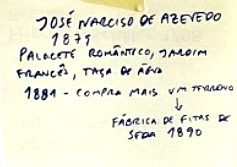 JOSÉ NARCISO DE AZEVEDO
1879
PALACETE ROMÂNTICO, JARDIM
FRANCÊS, TAÇA DE ÁGUA
1881 - COMPRA MAIS UM TERRENO
↓
FÁBRICA DE FITAS DE
SEDA 1890